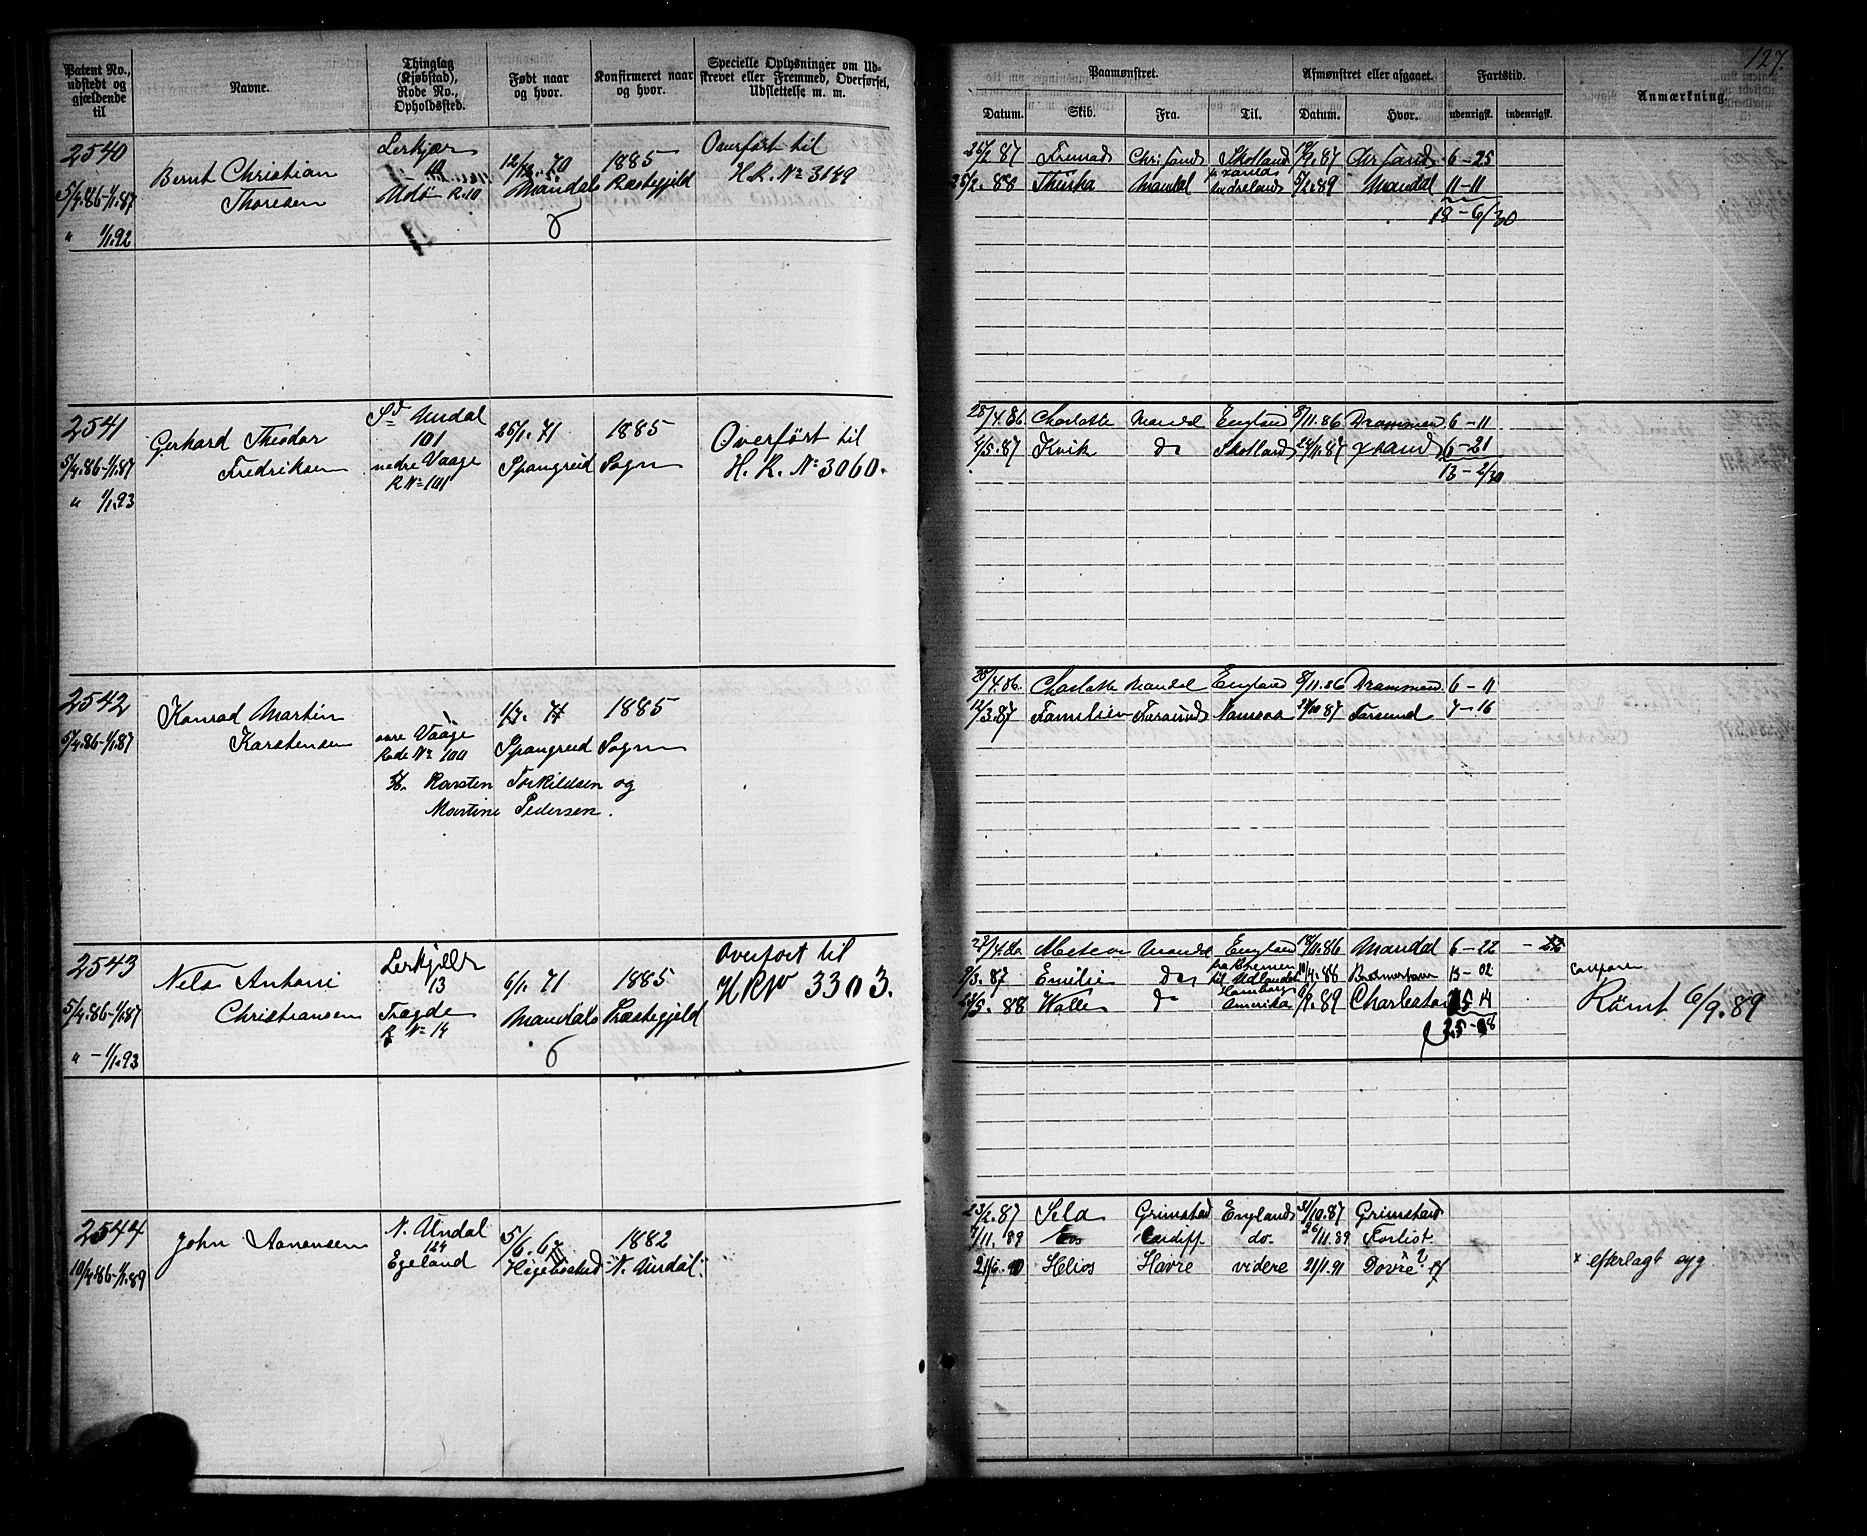 127.
Patent No., udstedt og gjældende til
Navne.
Thinglag (Kjøbstad), Rode No., Opholdssted.
Født naar og hvor.
Konfirmeret naar og hvor.
Specielle Oplysninger om Udskrevet eller Fremmed, Overførsel, Udslettelse m. m.
Paamønstret.
Afmønstret eller afgaaet.
Fartstid.
Anmærkning.
Datum. Skib. Fra. Til. Datum. Hvor. udenrigsk. indenrigsk.
2540
5/4.86-1/1.87
" 1/1.92
Bernt Christian
Thoresen
Lerkjær
10
Udø R. 10
12/12. 70
1885
Mandals Præstegjeld
Overført til
H. R. No 3149
25/2 87 Fremad Chr. sand Skotland 19/9 87 Chr sand 6-25
25/2. 88 Mandal 5/2.89 Mandal 11-11
18-6/30
2541
5/4.86-1/1.87
" 1/1.93
Gerhard Theodor
Fredriksen
Sd. Undal
101
nedre Vaage
R No 101
25/1. 71
1885
Spangreid Sogn
Overført til
H. R. No 3060.
28/4.86 Charlotte Mandal England 8/11.86 Drammen 6-11
4/5.87 Kvik do Skotland 24/11.87 xsand 6-21
13-2/30
2542
5/4.86-1/1.87
Konrad Martin
Karstensen
øvre Vaage
Rode No 100
1/7. 71
1885
Spangreid Sogn
Karsten Torkildsen og
Martine Pedersen.
28/4.86. Charlotte Mandal England 8/11.86 Drammen 6-11
12/3.87 Familien Farsund Namsos 87 Farsund 7-16
2543
5/4.86-1/1.87
" - 1/1.93
Nils Antoni
Christiansen
Lerkjær
13
Tregde
R No 14
6/1. 71
1885
Mandals Præstegjeld
Overfort til
HR No 3303.
Meteor Mandal England 86 Mandal 6-22
87 Emilie do fra Bremen til Udlandet 88 13-02
88 Walle do Hamburg Amerika 6/9.89 Charleston 14
Rømt 6/9.89
2544
10/4.86-1/1.89
John Aanensen
N. Undal
124
Egeland
5/6. 67
1882
Hægebostad N. Undal.
23/2.87 Sela Grimstad England 31/10.87 Grimstad
7/11. 89 Eos Cardiff do. 26/11.89 Forlist.
90 Helios Havre videre 21/1.91 Dovre
x efterlagt syg.